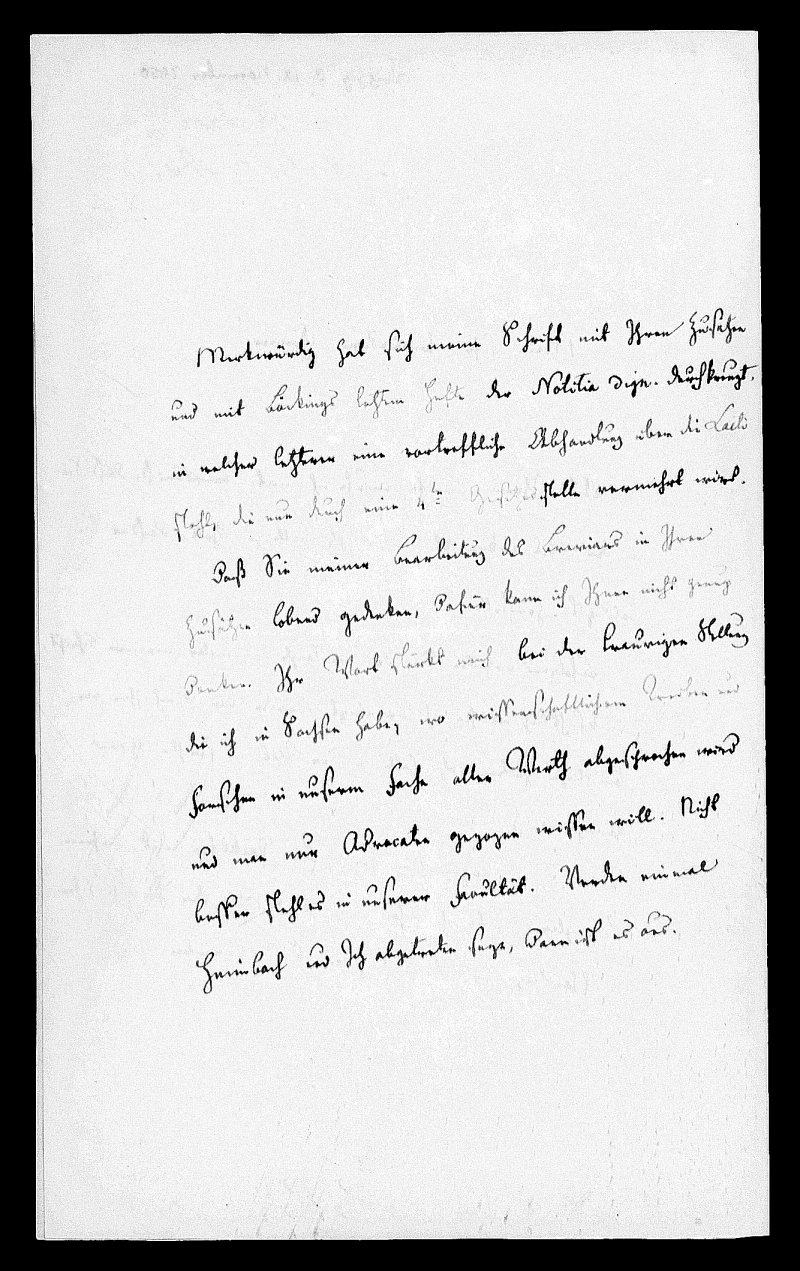 Merkwürdig hat sich meine Schrift mit Ihren Zusätzen
und mit Böckings letztem Hefte der Notitia dign. durchkreuzt,
in welcher letzterer eine vortreffliche Abhandlung über die Laeti
steht, die nur durch eine 4te Gesetzesstelle vermehrt wird.
Daß Sie meiner Bearbeitung des Breviars in Ihren
Zusätzen lobend gedenken, dafür kann ich Ihnen nicht genug
danken. Ihr Wort stärkt mich bei der traurigen Stellung
die ich in Sachsen habe, wo wissenschaftlichem Treiben und
Forschen in unserm Fache aller Werth abgesprochen wird
und man nur Advocaten gezogen wissen will. Nicht
besser steht es in unserer Facultät. Werden einmal
Haimbach und Ich abgetreten seyn, dann ist es aus.